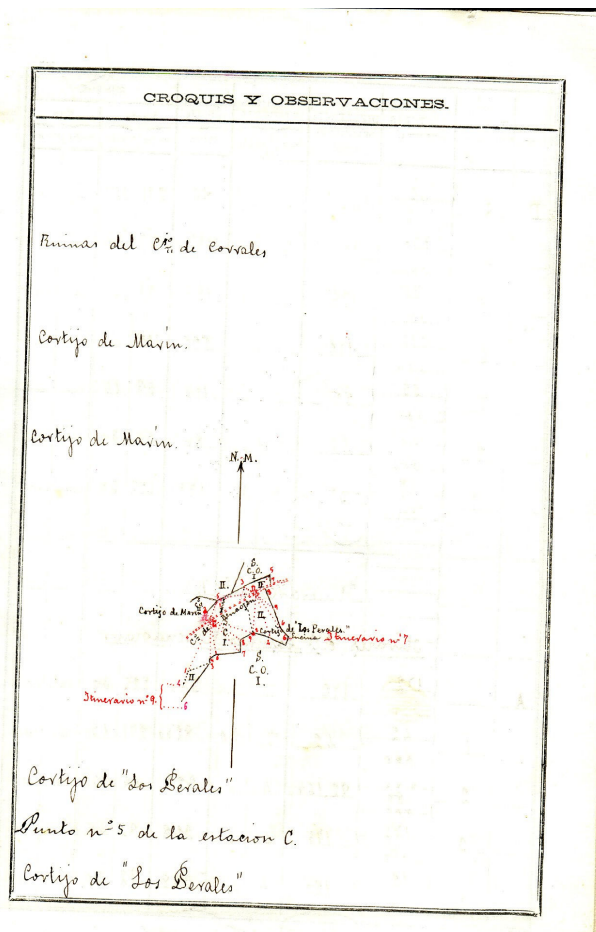 CROQUIS Y OBSERVACIONES.
Ruinas del C.jo de Corrales
Cortijo de Marin.
Cortijo de Marin.
N.M.
S.
C.O.
I.
II.
II.
Cortijo de Marin
II.
Cortijo de "Los Perales"
Itinerario nº 7
I.
S.
C.O.
I.
II
Itinerario nº 9.
Cortijo de "Los Perales"
Punto nº 5 de la estacion C.
Cortijo de "Los Perales"